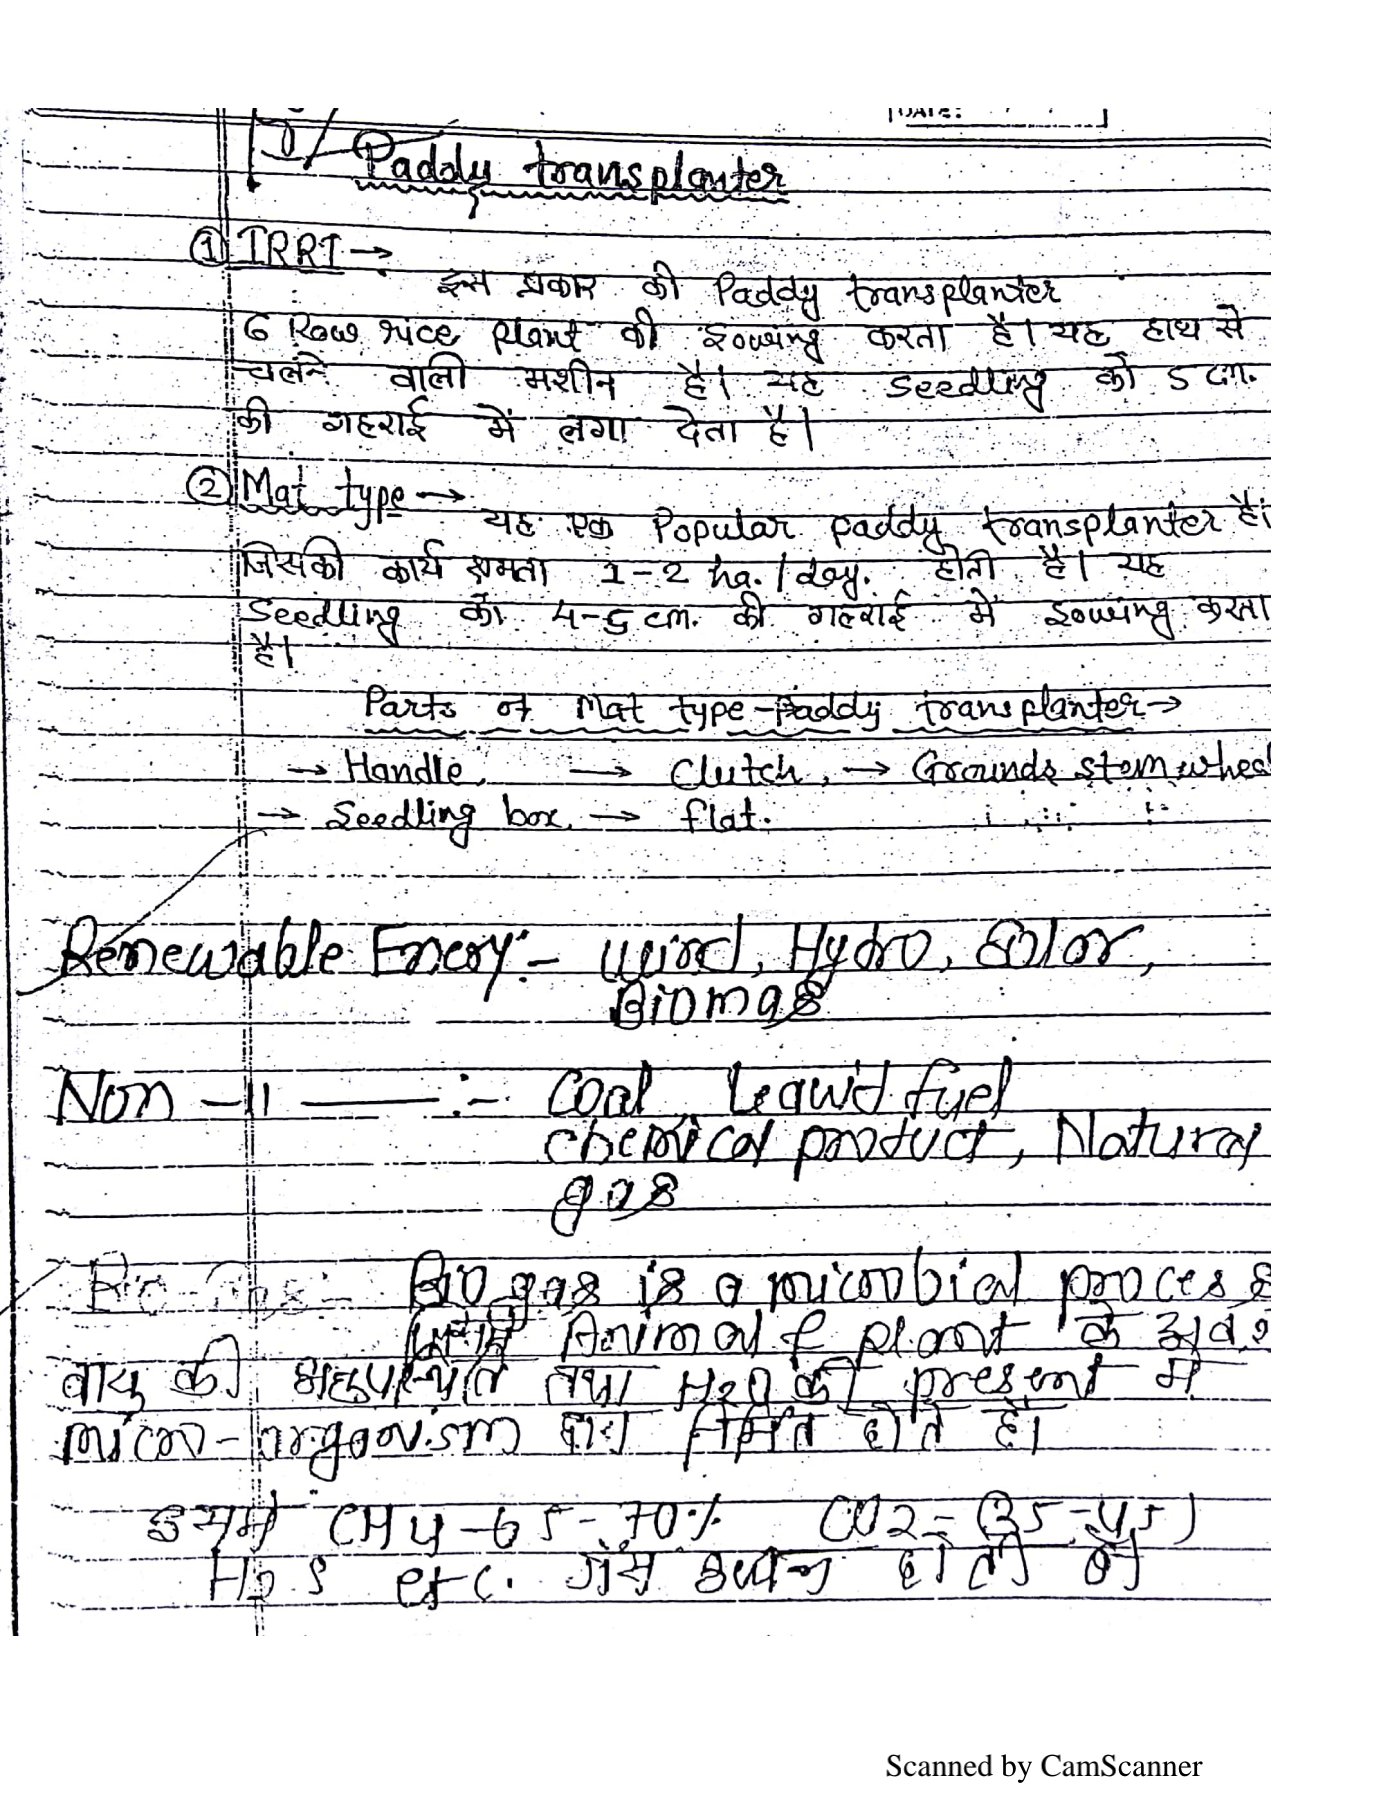 DATE:
Paddy transplanter
① IRRI →
इस प्रकार की Paddy transplanter
6 Row rice plant की sowing करता है। यह हाथ से
चलने वाली मशीन है। यह seedling को 5 cm.
की गहराई में लगा देता है।
② Mat type →
यह एक Popular paddy transplanter है।
जिसकी कार्य क्षमता 1-2 ha. / day. होती है। यह
seedling को 4-5 cm. की गहराई में sowing करता
है।
Parts of Mat type-Paddy transplanter →
→ Handle, → Clutch, → Grounds stem whee
→ Seedling box, → flat.
Renewable Enery:- wind, Hydro, Solar,
Biomas
Non -11 ——— :- Coal, Lequid fuel
chemical product, Natural
gas
Bio gas:- Bio gas is a microbial process
जिसमें Animal & plant के अवशे
वायु की अनुपस्थिति तथा H2O की present में
micro-organism द्वारा निर्मित होते है।
इसमें CH4-65-70% CO2-(35-45)
H2S etc. गैस उत्पन्न होती है
Scanned by CamScanner